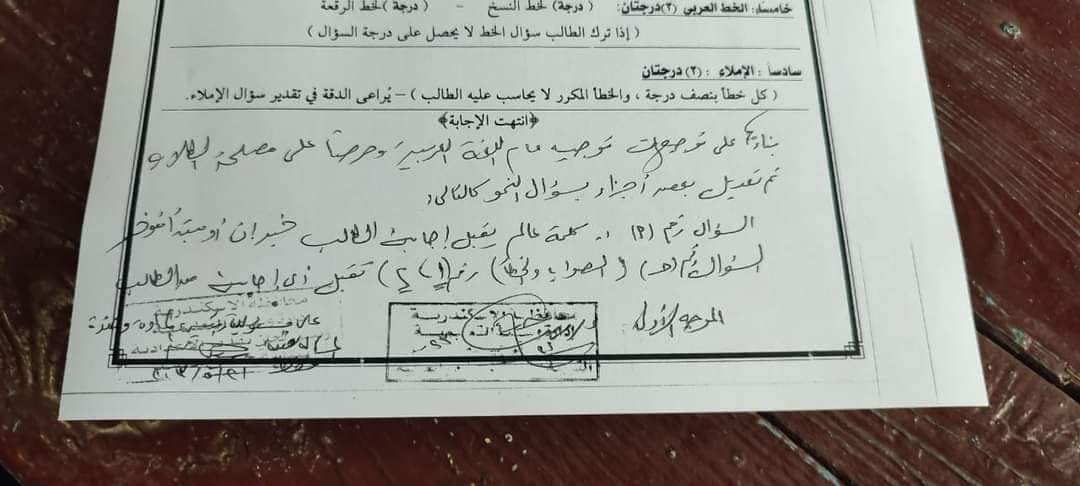 خامساً: الخط العربي (٢) درجتان: ( درجة) لخط النسخ - ( درجة ) لخط الرقعة
( إذا ترك الطالب سؤال الخط لا يحصل على درجة السؤال )
سادساً : الإملاء : (٢) درجتان
( كل خطأ بنصف درجة ، والخطأ المكرر لا يحاسب عليه الطالب ) – يُراعى الدقة في تقدير سؤال الإملاء.
﴿انتهت الإجابة﴾
بناءً على توجيهات توجيه عام اللغة العربية وحرصاً على مصلحة الطلاب
تم تعديل بعض أجزاء سؤال النحو كالتالى:
السؤال رقم (٢) : كلمة عالم يقبل إجابة الطالب خبر إن أو مبتدأ مؤخر
السؤال رقم (هـ) ( الصواب والخطأ) رقم تقبل أى إجابة من الطالب
الموجه الأول
محافظة الإسكندرية